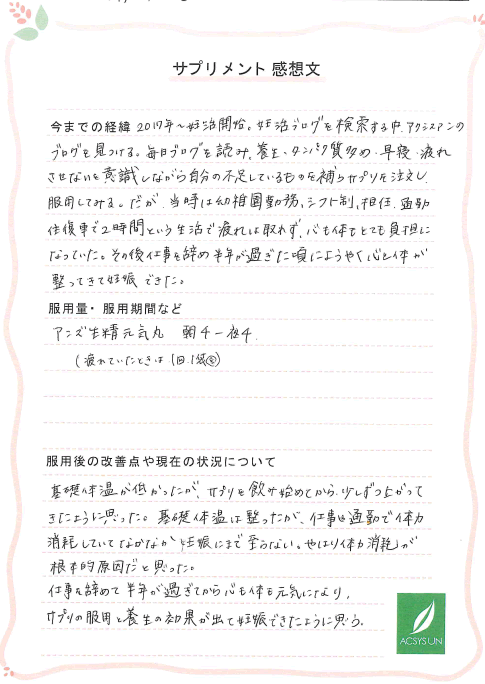 サプリメント 感想文
今までの経緯 2017年〜妊活開始。妊活ブログを検索する中、アクシスアンの
ブログを見つける。毎日ブログを読み、養生、タンパク質多め・早寝・疲れ
させないを意識しながら自分の不足しているものを補うサプリを注文し
服用してみる。だが、当時は幼稚園勤務、シフト制、担任、通勤
往復車で2時間という生活で疲れは取れず、心も体もとても負担に
なっていた。その後仕事を辞め半年が過ぎた頃にようやく心と体が
整ってきて妊娠できた。
服用量・服用期間など
アンズ生精元気丸 朝4−夜4
(疲れていたときは1回1袋
服用後の改善点や現在の状況について
基礎体温が低かったが、サプリを飲み始めてから少しずつ上がって
きたように思った。基礎体温は整ったが、仕事や通勤で体力
消耗していてなかなか妊娠にまで至らない。やはり体力消耗が
根本的原因だと思った。
仕事を辞めて半年が過ぎてから心も体も元気になり、
サプリの服用と養生の効果が出て妊娠できたように思う。
ACSYSUN